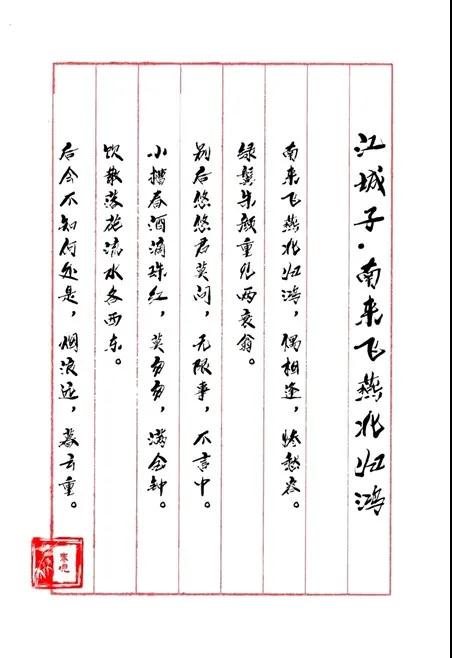 江城子·南来飞燕北归鸿
南来飞燕北归鸿，偶相逢，惨愁容。
绿鬓朱颜重见两衰翁。
别后悠悠君莫问，无限事，不言中。
小槽春酒滴珠红，莫匆匆，满金钟。
饮散落花流水各西东。
后会不知何处是，烟浪远，暮云重。